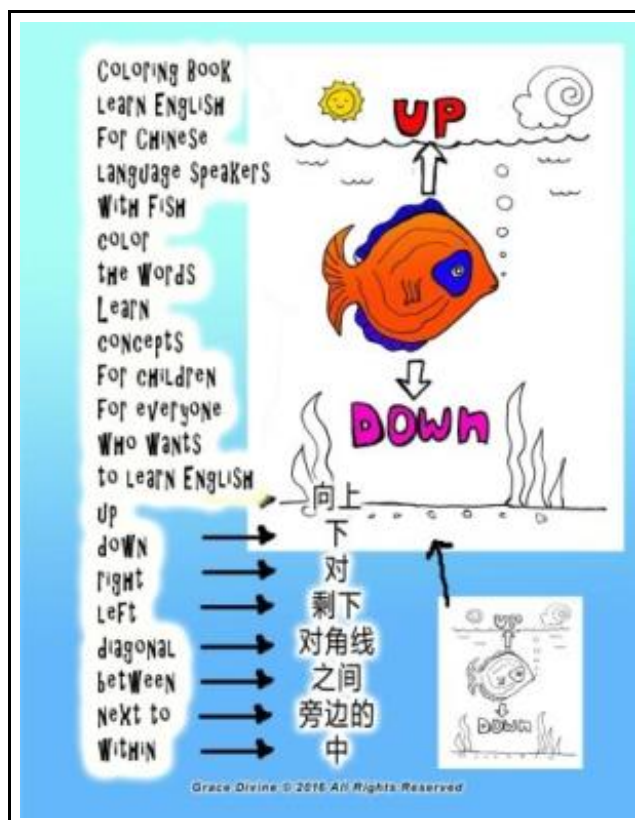 Coloring Book
Learn English
For Chinese
Language Speakers
With Fish
color
the Words
Learn
concepts
For children
For everyone
Who Wants
to learn English
up
down
right
left
diagonal
between
Next to
Within
UP
DOWN
向上
下
对
剩下
对角线
之间
旁边的
中
UP
DOWN
Grace Divine © 2016 All Rights Reserved